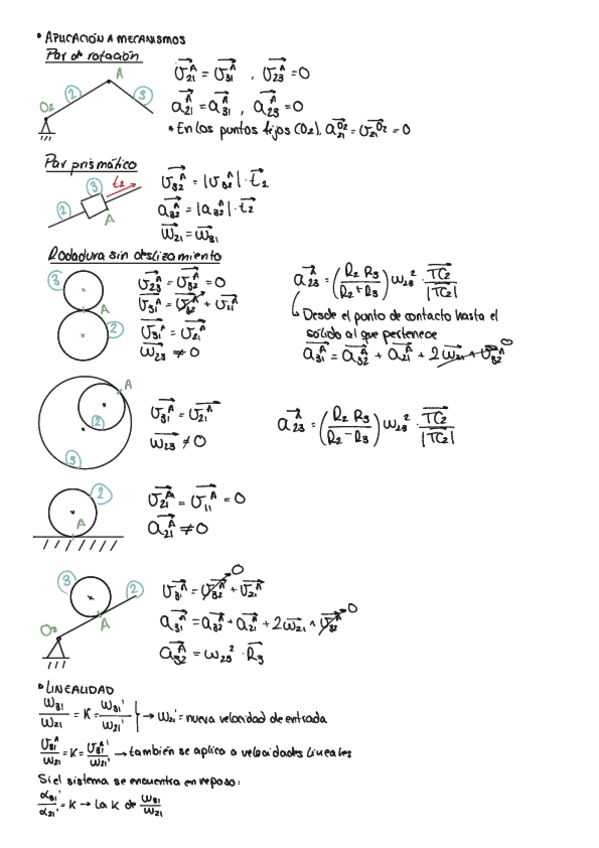 • APLICACIÓN A MECANISMOS
Par de rotación
A
2
3
O₂
v₂₁ᴬ = v₃₁ᴬ , v₂₃ᴬ = 0
a₂₁ᴬ = a₃₁ᴬ , a₂₃ᴬ = 0
* En los puntos fijos (O₂), a₂₁ᴼ² = v₂₁ᴼ² = 0
Par prismático
3
t₂
2
A
v₃₂ᴬ = |v₃₂ᴬ| · t₂
a₃₂ᴬ = |a₃₂ᴬ| · t₂
ω₂₁ = ω₃₁
Rodadura sin deslizamiento
3
A
2
v₂₃ᴬ = v₃₂ᴬ = 0
v₃₁ᴬ = v₃₂ᴬ + v₁₁ᴬ
v₃₁ᴬ = v₂₁ᴬ
ω₂₃ ≠ 0
a₂₃ᴬ = (R₂ R₃ / R₂ + R₃) ω₂₃² · TC₂ / |TC₂|
Desde el punto de contacto hasta el
sólido al que pertenece
a₃₁ᴬ = a₃₂ᴬ + a₂₁ᴬ + 2ω₂₁ ∧ v₃₂ᴬ 0
A
2
3
v₃₁ᴬ = v₂₁ᴬ
ω₂₃ ≠ 0
a₂₃ᴬ = (R₂ R₃ / R₂ - R₃) ω₂₃² · TC₂ / |TC₂|
2
A
v₂₁ᴬ = v₁₁ᴬ = 0
a₂₁ᴬ ≠ 0
3
2
O₂
A
v₃₁ᴬ = v₃₂ᴬ 0 + v₂₁ᴬ
a₃₁ᴬ = a₃₂ᴬ + a₂₁ᴬ + 2ω₂₁ ∧ v₃₂ᴬ 0
a₃₂ᴬ = ω₂₃² · R₃
• LINEALIDAD
ω₃₁ / ω₂₁ = K = ω₃₁' / ω₂₁' → ω₂₁' = nueva velocidad de entrada
v₃₁ᴬ / ω₂₁ = K = v₃₁ᴬ' / ω₂₁' → también se aplica a velocidades lineales
Si el sistema se encuentra en reposo:
α₃₁' / α₂₁' = K → La K de ω₃₁ / ω₂₁